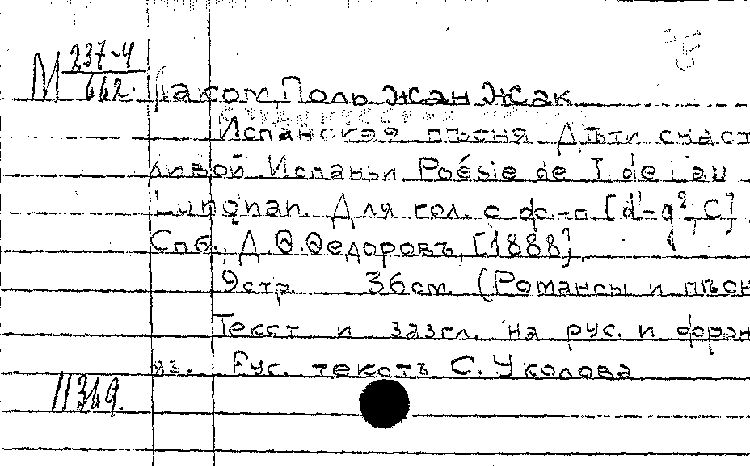 М 237-4
662.
Лаком, Поль Жан Жак
Испанская пѣсня Дѣти счаст
ливой Испаньи Poésie de J. de Lau
Lungnan. Для гол. с ф.-п [d'-g², C]
Спб., Д. Ѳ. Ѳедоровъ, [1888]
9 стр. 36 см. (Романсы и пѣсн
Текст и загл. на рус. и фран
яз. Рус. текстъ С. Уколова
11369.